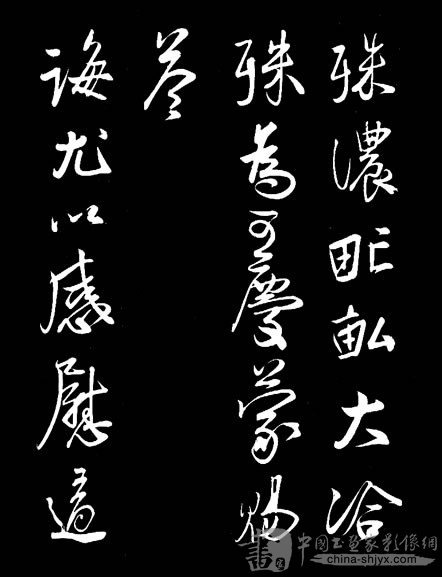 殊濃甿畝大洽
殊為可慶蒙賜
答
誨尤以感慰適
中國书画家影像網
china-shjyx.com